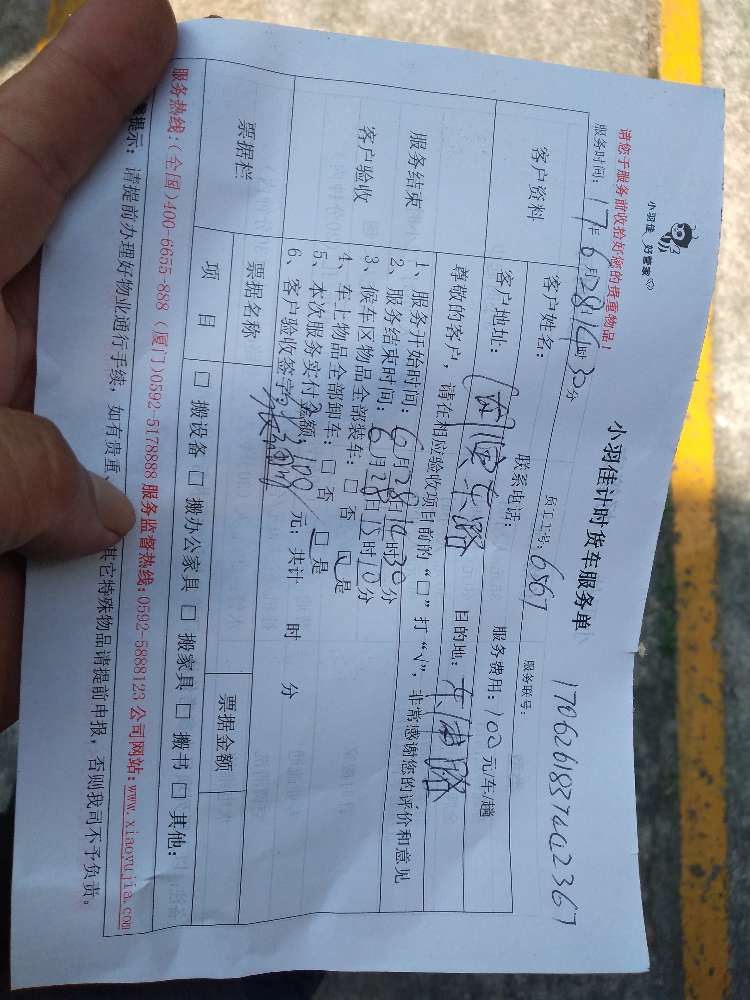 小羽佳 好管家
小羽佳计时货车服务单
请您于服务前收拾好您的贵重物品!
服务时间: 17年6月28日14时30分 员工工号: 6567 服务联号:
客户资料
客户姓名: 联系电话: 服务费用: 100元/车/趟
客户地址: 东路 目的地: 东浦路
尊敬的客户, 请在相应验收项目前的“□”打“√”, 非常感谢您的评价和意见
服务结束
客户验收
1、服务开始时间: 6月28日14时30分
2、服务结束时间: 6月28日15时10分
3、候车区物品全部装车: □ 否 ☑ 是
4、车上物品全部卸车: □ 否 □ 是
5、本次服务实付金额: 100 元; 共计 时 分
6、客户验收签字:
票据栏
票据名称 票据金额
项 目 □ 搬设备 □ 搬办公家具 □ 搬家具 □ 搬书 □ 其他:
服务热线: (全国)400-6655-888 (厦门)0592-5178888 服务监督热线: 0592-5888123 公司网站: www.xiaoyujia.com
提示: 请提前办理好物业通行手续, 如有贵重、其它特殊物品请提前申报, 否则我司不予负责。